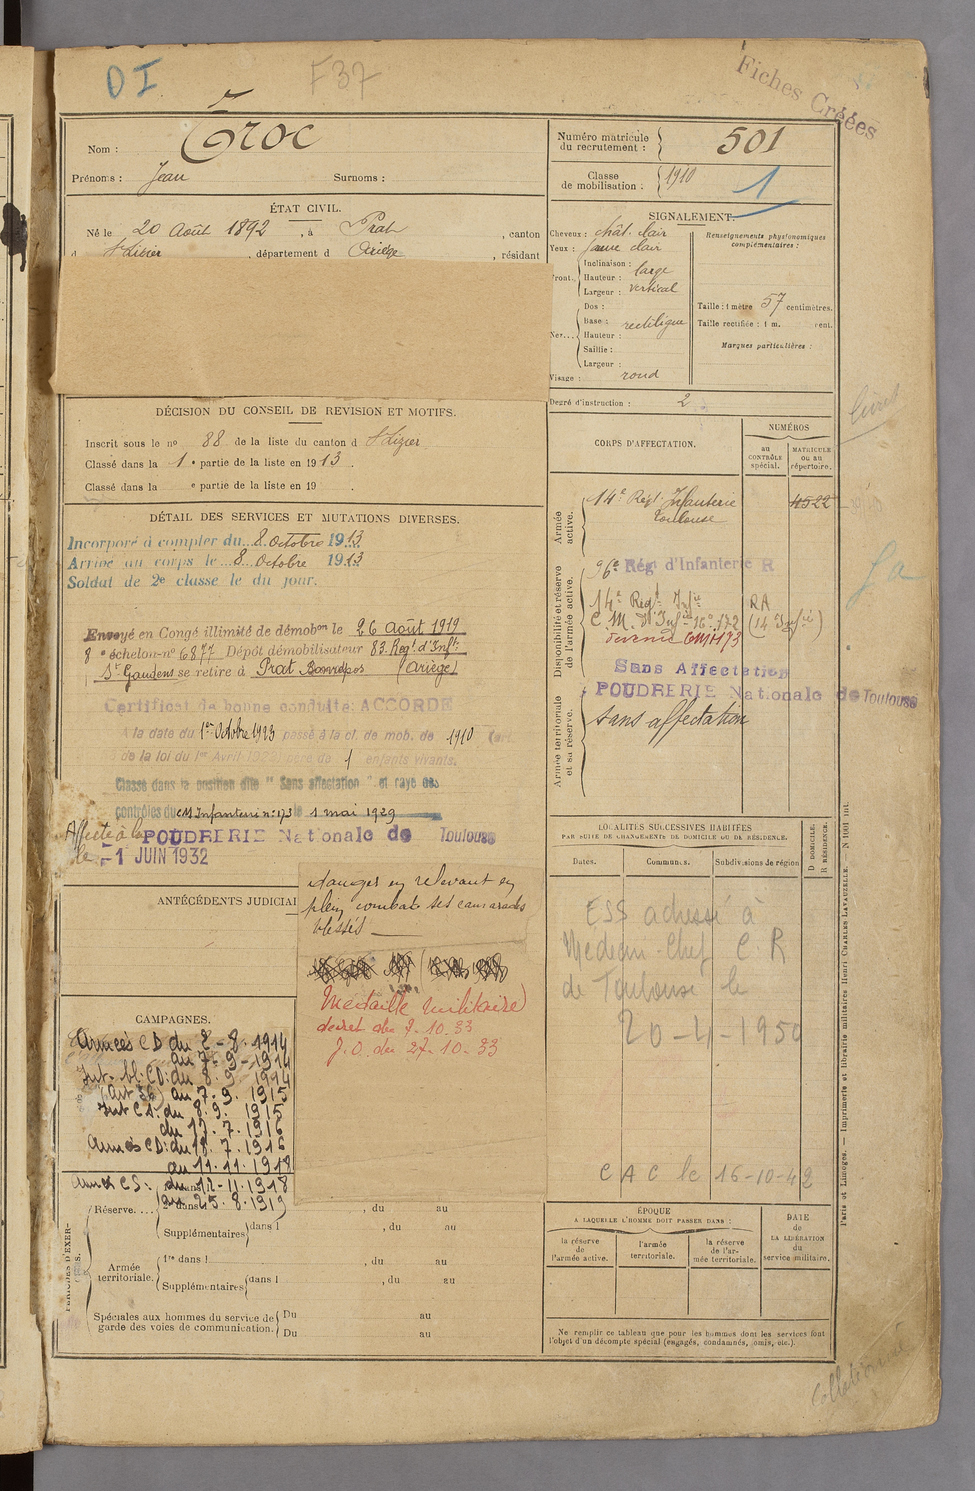 DI
F37
Fiches Créées
Nom : Troc
Prénoms : Jean Surnoms :
Numéro matricule du recrutement : 501
Classe de mobilisation : 1910
1
ÉTAT CIVIL.
Né le 20 Août 1892, à Prat, canton
St Lizier, département d Ariège, résidant
SIGNALEMENT.
Cheveux : chât. clair
Yeux : jaune clair
Inclinaison :
Front. Hauteur : large
Largeur : vertical
Dos :
Base : rectiligne
Nez... Hauteur :
Saillie :
Largeur :
Visage : rond
Renseignements physionomiques complémentaires :
Taille : 1 mètre 57 centimètres.
Taille rectifiée : 1 m. cent.
Marques particulières :
Degré d'instruction : 2
livret
DÉCISION DU CONSEIL DE REVISION ET MOTIFS.
Inscrit sous le no 88 de la liste du canton d St Lizier
Classé dans la 1e partie de la liste en 1913.
Classé dans la e partie de la liste en 19 .
DÉTAIL DES SERVICES ET MUTATIONS DIVERSES.
Incorporé à compter du 8 Octobre 1913
Arrivé au corps le 8 Octobre 1913
Soldat de 2e classe le du jour.
Envoyé en Congé illimité de démobon le 26 Août 1919
8e échelon-no 6877 Dépôt démobilisateur 83. Regt. d'Inftie
St Gaudens se retire à Prat Bonrepos (Ariège)
Certificat de bonne conduite: ACCORDÉ
A la date du 1er Octobre 1923 passé à la cl. de mob. de 1910
de la loi du 1er Avril 1923 père de 1 enfants vivants.
Classé dans la position dite "Sans affectation" et rayé des
contrôles du CM Infanterie no 173 le 1 mai 1929
Affecté à la POUDRERIE Nationale de Toulouse
le 1 JUIN 1932
CORPS D'AFFECTATION.
NUMÉROS
au CONTRÔLE spécial.
MATRICULE ou au répertoire.
Armée active.
14e Regt Infanterie
Toulouse
4522
Disponibilité et réserve de l'armée active.
96e Rég d'Infanterie R
14e Regt Infie RA
C.M. d'Infie 16e 172 (14 Infie)
devenu CMI 173
Sans Affectation
POUDRERIE Nationale de Toulouse
Armée territoriale et sa réserve.
sans affectation
ANTÉCÉDENTS JUDICIAI
danger en relevant en
plein combat ses camarades
blessés
Médaille militaire
décret du 7-10-33
J.O. du 27-10-33
LOCALITÉS SUCCESSIVES HABITÉES
PAR SUITE DE CHANGEMENTS DE DOMICILE OU DE RÉSIDENCE.
Dates. Communes. Subdivisions de région
D DOMICILE.
R RÉSIDENCE.
ESS adressé à
Médecin-Chef C.R
de Toulouse le
20-4-1950
CAC le 16-10-42
CAMPAGNES.
Armées CD du 2-8-1914
au 7-9-1914
Int. bl. CD: du 8.9.1914
(art 36) au 7.9.1915
Int CS: du 8.9.1915
au 17.7.1916
Armées CD: du 18.7.1916
au 11.11.1918
Armée CS: du 12-11-1918
au 25.8.1919
Réserve.... 2e dans l , du au
Supplémentaires dans l , du au
Armée territoriale. 1re dans l , du au
Supplémentaires dans l , du au
Spéciales aux hommes du service de garde des voies de communication. Du au
Du au
ÉPOQUE
A LAQUELLE L'HOMME DOIT PASSER DANS :
la réserve de l'armée active.
l'armée territoriale.
la réserve de l'armée territoriale.
DATE de LA LIBÉRATION du service militaire.
Ne remplir ce tableau que pour les hommes dont les services font
l'objet d'un décompte spécial (engagés, condamnés, omis, etc.).
Paris et Limoges. — Imprimerie et librairie militaires Henri CHARLES LAVAUZELLE. — N 1001 int.